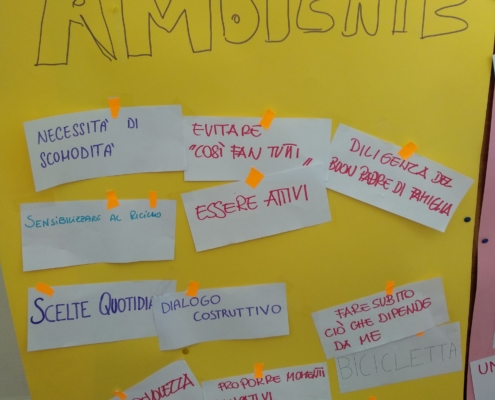 AMBIENTE
NECESSITA' DI
SCOMODITA'
EVITARE
"COSÌ FAN TUTTI"
DILIGENZA DEL
BUON PADRE DI FAMIGLIA
SENSIBILIZZARE AL RICICLO
ESSERE ATTIVI
SCELTE QUOTIDIA
DIALOGO
COSTRUTTIVO
FARE SUBITO
CIÒ CHE DIPENDE
DA ME
BICICLETTA
PROPORRE MOMENTI
UN